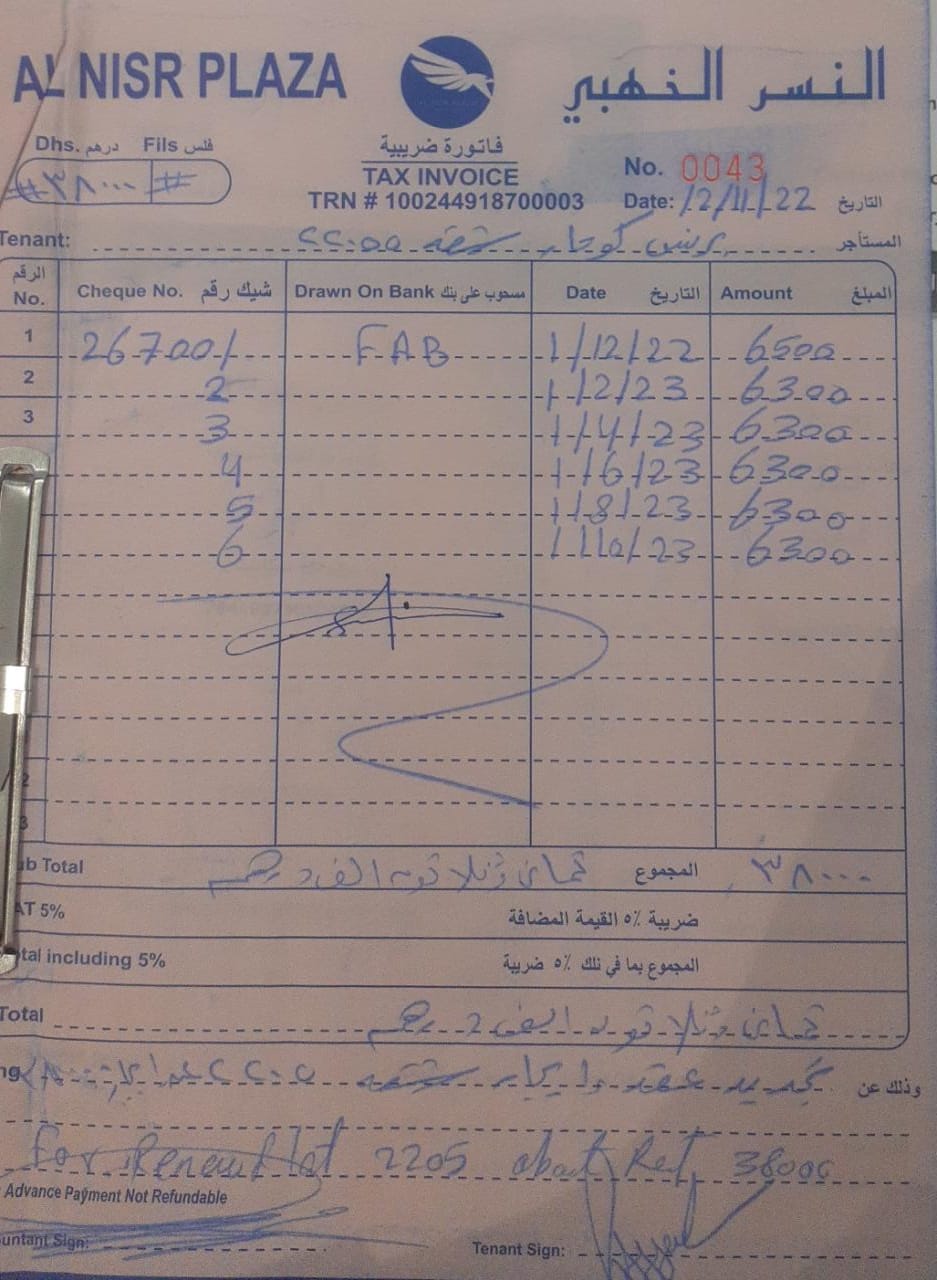 AL NISR PLAZA
النسر الذهبي
Dhs. درهم Fils فلس
#٣٨٠٠٠ #
فاتورة ضريبية
TAX INVOICE
TRN # 100244918700003
No. 0043
Date: 12/11/22 التاريخ
Tenant: شقة المستأجر
No. الرقم Cheque No. شيك رقم Drawn On Bank مسحوب على بنك Date التاريخ Amount المبلغ
1 267001 FAB 1/12/22 6500
2 2 1/2/23 6300
3 3 1/4/23 6300
4 1/6/23 6300
5 1/8/23 6300
6 1/10/23 6300
ub Total ثمانى وثلاثون الف درهم المجموع ٣٨٠٠٠
AT 5% ضريبة ٥٪ القيمة المضافة
tal including 5% المجموع بما في ذلك ٥٪ ضريبة
Total ثمانى وثلاثون الف درهم
ng تجديد عقد ايجار شقة ٢٢٠٥ وذلك عن
for Renew flat 2205 Ref 38000
Advance Payment Not Refundable
untant Sign:
Tenant Sign: